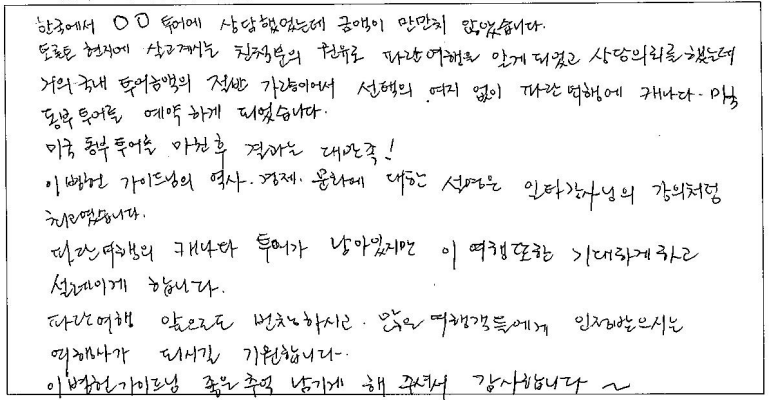 한국에서 〇〇 투어에 상담했었는데 금액이 만만치 않았습니다.
토론토 현지에 살고계시는 친척분의 권유로 파란여행을 알게되었고 상담의뢰를 했는데
거의 국내 투어금액의 절반 가량이어서 선택의 여지 없이 파란여행에 캐나다·미국
동부투어를 예약하게 되었습니다.
미국 동부투어를 마친후 결과는 대만족!
이병헌 가이드님의 역사·경제·문화에 대한 설명은 일타강사님의 강의처럼
최고였습니다.
파란여행의 캐나다 투어가 남아있지만 이 여행또한 기대하게하고
설레이게 합니다.
파란여행 앞으로도 번창하시고 많은 여행객들에게 인정받으시는
여행사가 되시길 기원합니다~
이병헌가이드님 좋은추억 남기게 해 주셔서 감사합니다 ~